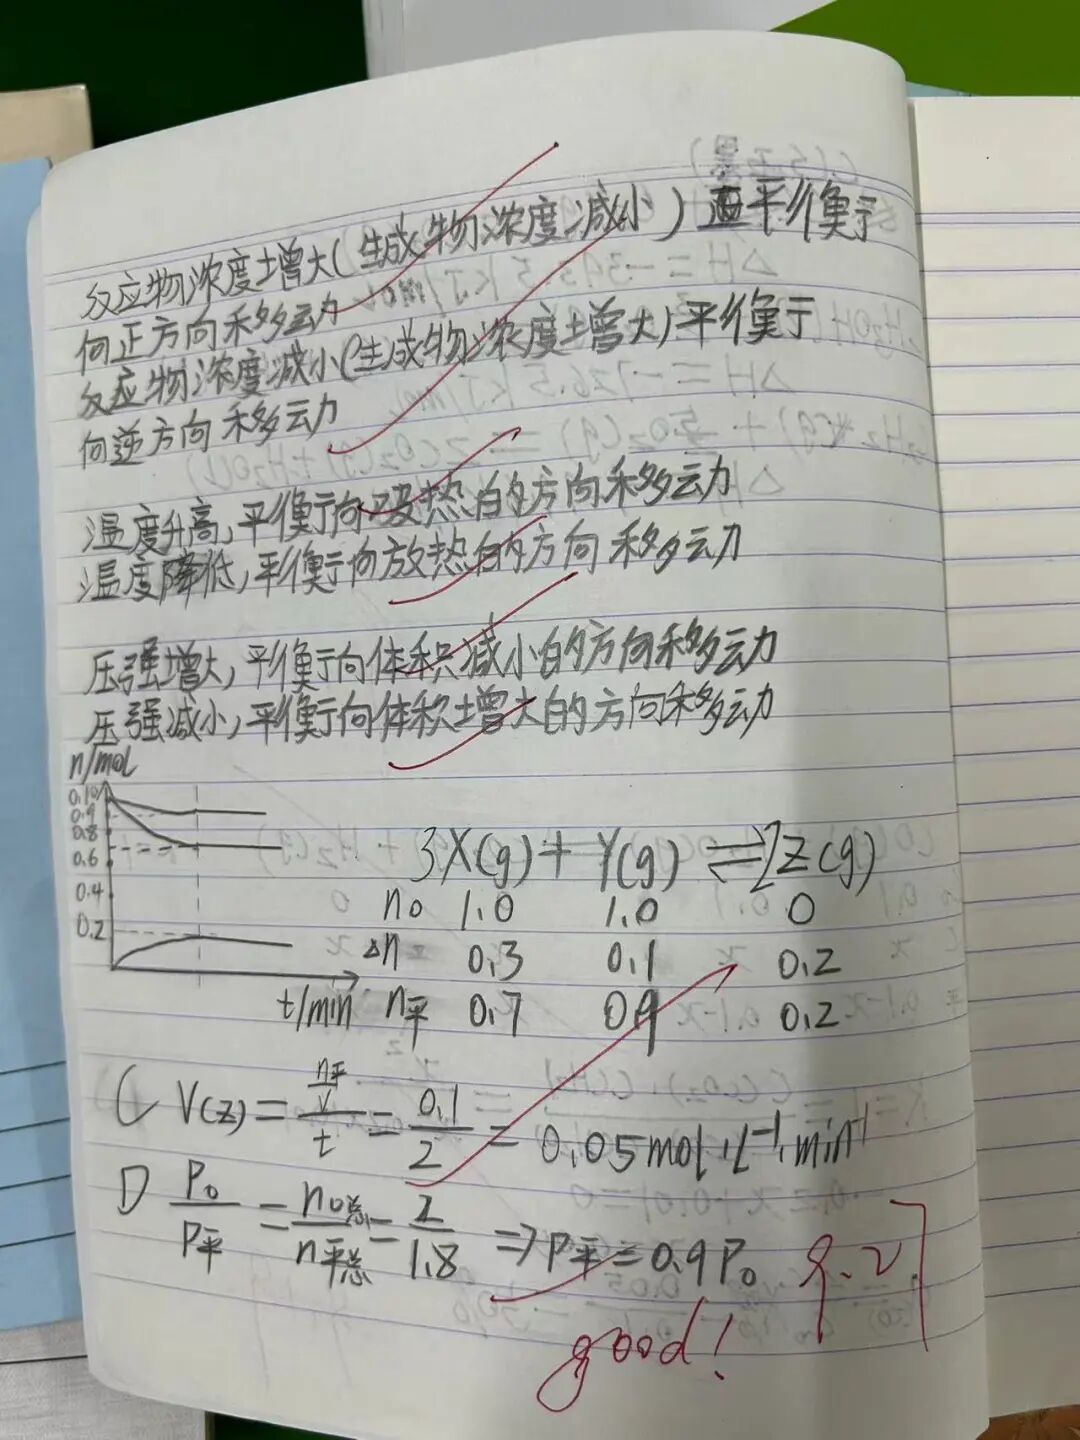 反应物浓度增大(生成物浓度减小)平衡
向正方向移动
反应物浓度减小(生成物浓度增大)平衡
向逆方向移动
温度升高,平衡向吸热的方向移动
温度降低,平衡向放热的方向移动
压强增大,平衡向体积减小的方向移动
压强减小,平衡向体积增大的方向移动
n/mol
0.10
0.9
0.8
0.6
0.4
0.2
t/min
3X(g)+Y(g)⇌2Z(g)
n₀ 1.0 1.0 0
Δn 0.3 0.1 0.2
n平 0.7 0.9 0.2
C V(Z)=(n平/V)/t=0.1/2=0.05mol·L⁻¹·min⁻¹
D P₀/P平=n₀总/n平总=2/1.8⇒P平=0.9P₀
9.27
good!